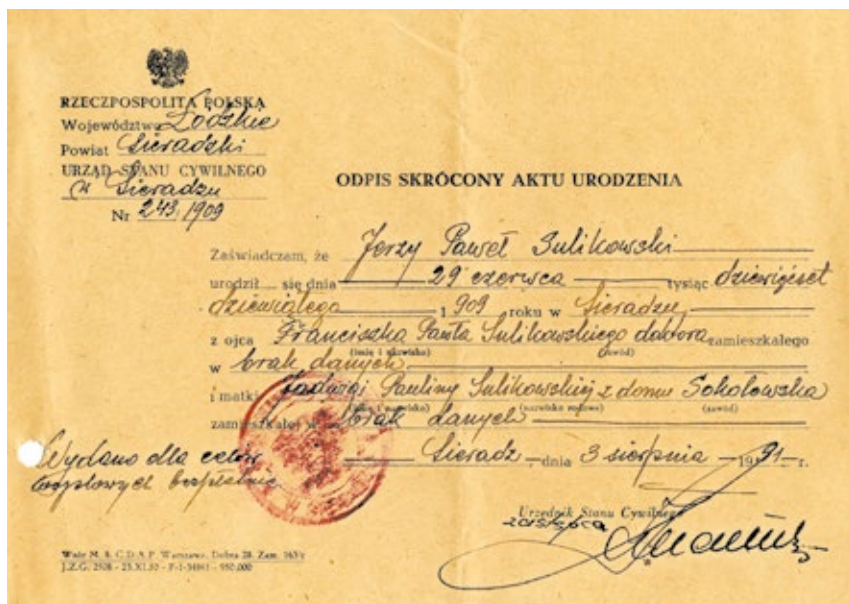 RZECZPOSPOLITA POLSKA
Województwo Łódzkie
Powiat Sieradzki
URZĄD STANU CYWILNEGO
w Sieradzu
Nr 243/1909
ODPIS SKRÓCONY AKTU URODZENIA
Zaświadczam, że Jerzy Paweł Sulikowski
urodził się dnia 29 czerwca tysiąc dziewięćset
dziewiątego 1909 roku w Sieradzu
z ojca Franciszka Pawła Sulikowskiego zamieszkałego
(imię i nazwisko) (zawód)
w brak danych
i matki Jadwigi Pauliny Sulikowskiej z domu Sokołowska
(imię i nazwisko) (nazwisko rodowe) (zawód)
zamieszkałej w brak danych
Sieradz, dnia 3 sierpnia 1991 r.
Wydano dla celów
bezpłatnie
Urzędnik Stanu Cywilnego
zastępca
Wzór M. 8. C.D.A.P. Warszawa, Dobra 28. Zam.
J.Z.G.